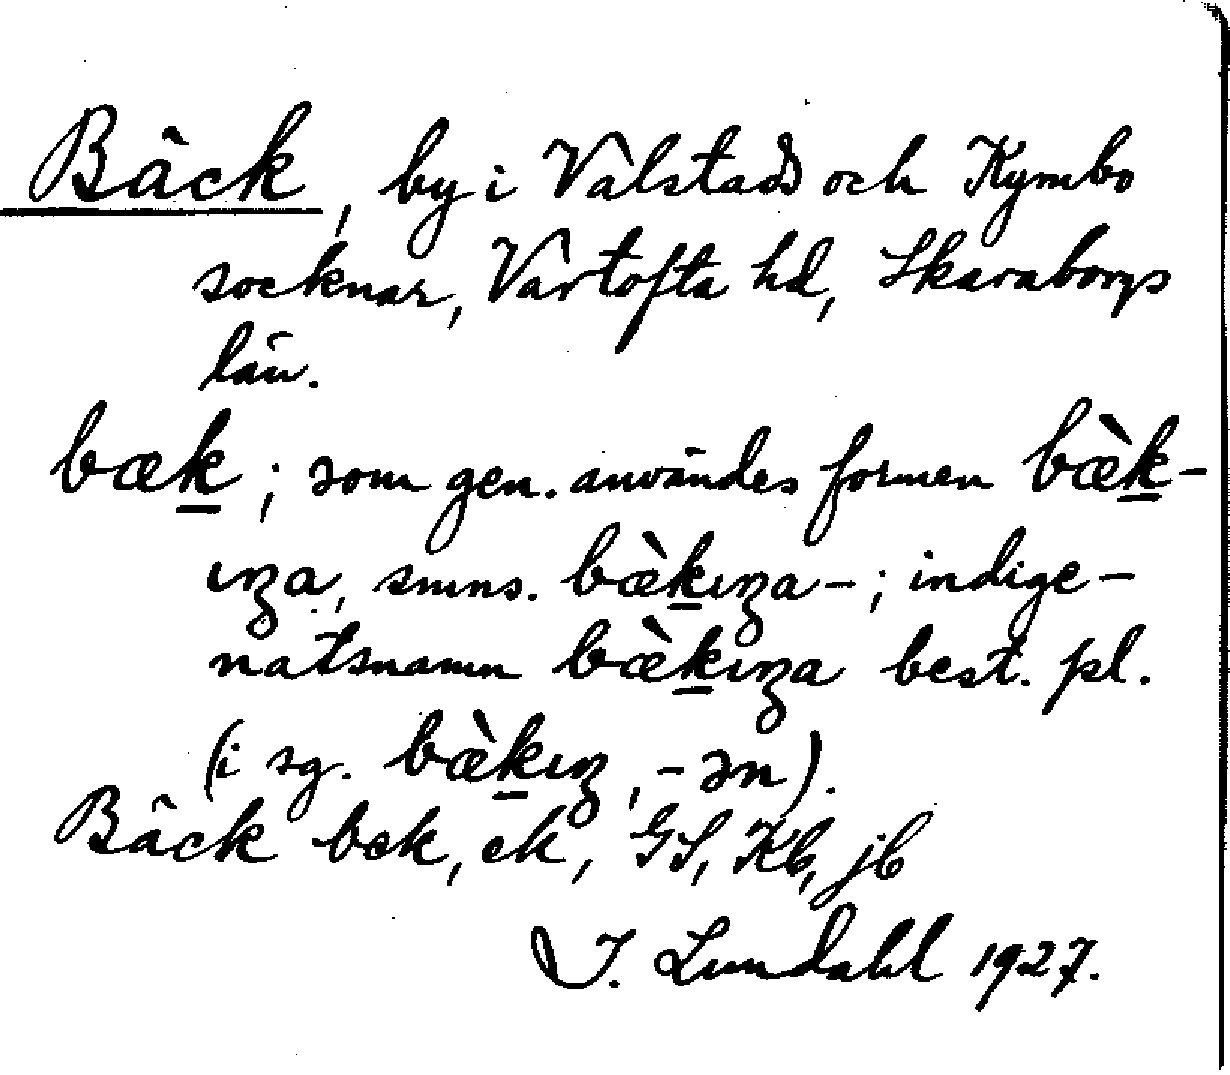 Bäck, by i Valstads och Kymbo
socknar, Vartofta hd, Skaraborgs
län.
bæk; som gen. användes formen bæ̀k-
ıȥa, smns. bæ̀kıȥa-; indige-
natsnamn bæ̀kıȥa best. pl.
(i sg. bæ̀kıȥ, -ən).
Bäck bek, ek, GS, Kb, jb
I. Lundahl 1927.